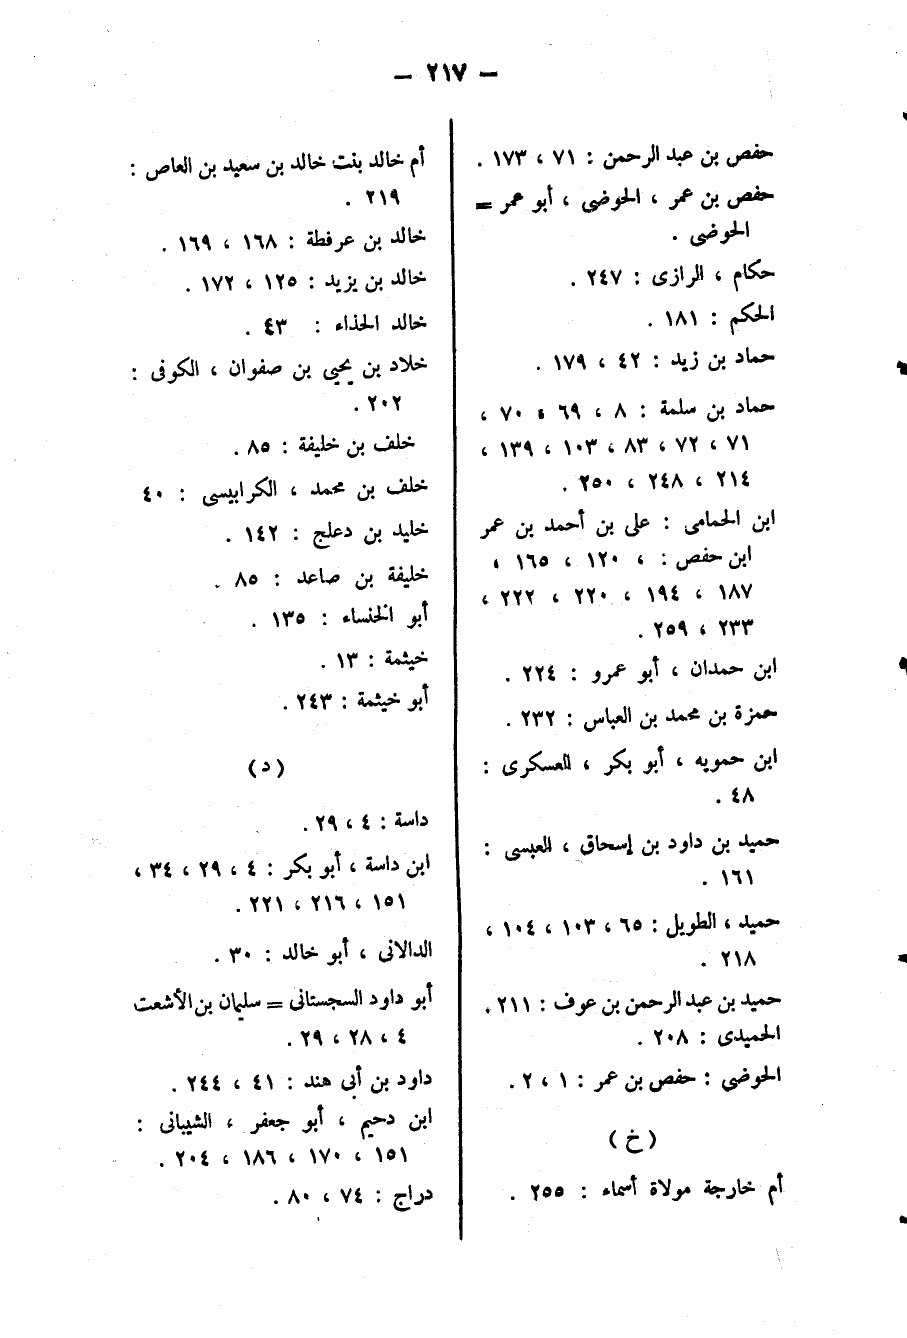 – ٢١٧ –
حفص بن عبد الرحمن : ٧١ ، ١٧٣ .
حفص بن عمر ، الحوضى ، أبو عمر =
الحوضى .
حكام ، الرازى : ٢٤٧ .
الحكم : ١٨١ .
حماد بن زيد : ٤٢ ، ١٧٩ .
حماد بن سلمة : ٨ ، ٦٩ ، ٧٠ ،
٧١ ، ٧٢ ، ٨٣ ، ١٠٣ ، ١٣٩ ،
٢١٤ ، ٢٤٨ ، ٢٥٠ .
ابن الحمامى : على بن أحمد بن عمر
ابن حفص : ، ١٢٠ ، ١٦٥ ،
١٨٧ ، ١٩٤ ، ٢٢٠ ، ٢٢٢ ،
٢٣٣ ، ٢٥٩ .
ابن حمدان ، أبو عمرو : ٢٢٤ .
حمزة بن محمد بن العباس : ٢٣٢ .
ابن حمويه ، أبو بكر ، العسكرى :
٤٨ .
حميد بن داود بن إسحاق ، العبسى :
١٦١ .
حميد ، الطويل : ٦٥ ، ١٠٣ ، ١٠٤ ،
٢١٨ .
حميد بن عبد الرحمن بن عوف : ٢١١ .
الحميدى : ٢٠٨ .
الحوضى : حفص بن عمر : ١ ، ٢ .
( خ )
أم خارجة مولاة أسماء : ٢٥٥ .
أم خالد بنت خالد بن سعيد بن العاص :
٢١٩ .
خالد بن عرفطة : ١٦٨ ، ١٦٩ .
خالد بن يزيد : ١٢٥ ، ١٧٢ .
خالد الحذاء : ٤٣ .
خلاد بن يحيى بن صفوان ، الكوفى :
٢٠٢ .
خلف بن خليفة : ٨٥ .
خلف بن محمد ، الكرابيسى : ٤٠
خليد بن دعلج : ١٤٢ .
خليفة بن صاعد : ٨٥ .
أبو الخنساء : ١٣٥ .
خيثمة : ١٣ .
أبو خيثمة : ٢٤٣ .
( د )
داسة : ٤ ، ٢٩ .
ابن داسة ، أبو بكر : ٤ ، ٢٩ ، ٣٤ ،
١٥١ ، ٢١٦ ، ٢٢١ .
الدالانى ، أبو خالد : ٣٠ .
أبو داود السجستانى = سليمان بن الأشعت
٤ ، ٢٨ ، ٢٩ .
داود بن أبى هند : ٤١ ، ٢٤٤ .
ابن دحيم ، أبو جعفر ، الشيبانى :
١٥١ ، ١٧٠ ، ١٨٦ ، ٢٠٤ .
دراج : ٧٤ ، ٨٠ .